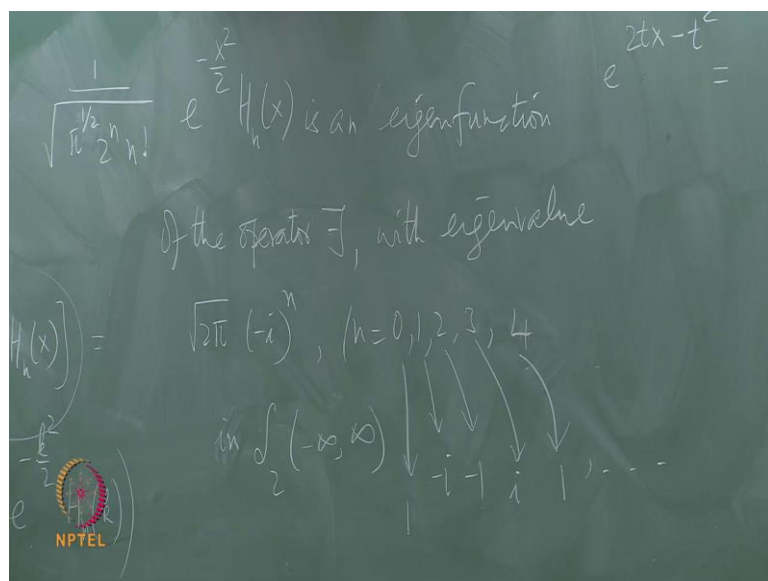 1/√(π^{1/2} 2^n n!) e^{-x²/2} H_n(x) is an eigenfunction e^{2tx-t²} =
Of the operator Ƒ, with eigenvalue
H_n(x)] = √2π (-i)^n, (n=0,1,2,3,4
in ℒ_2 (-∞,∞) 1 -i -1 i 1, ----
e^{-k²/2} H_n(k))
NPTEL